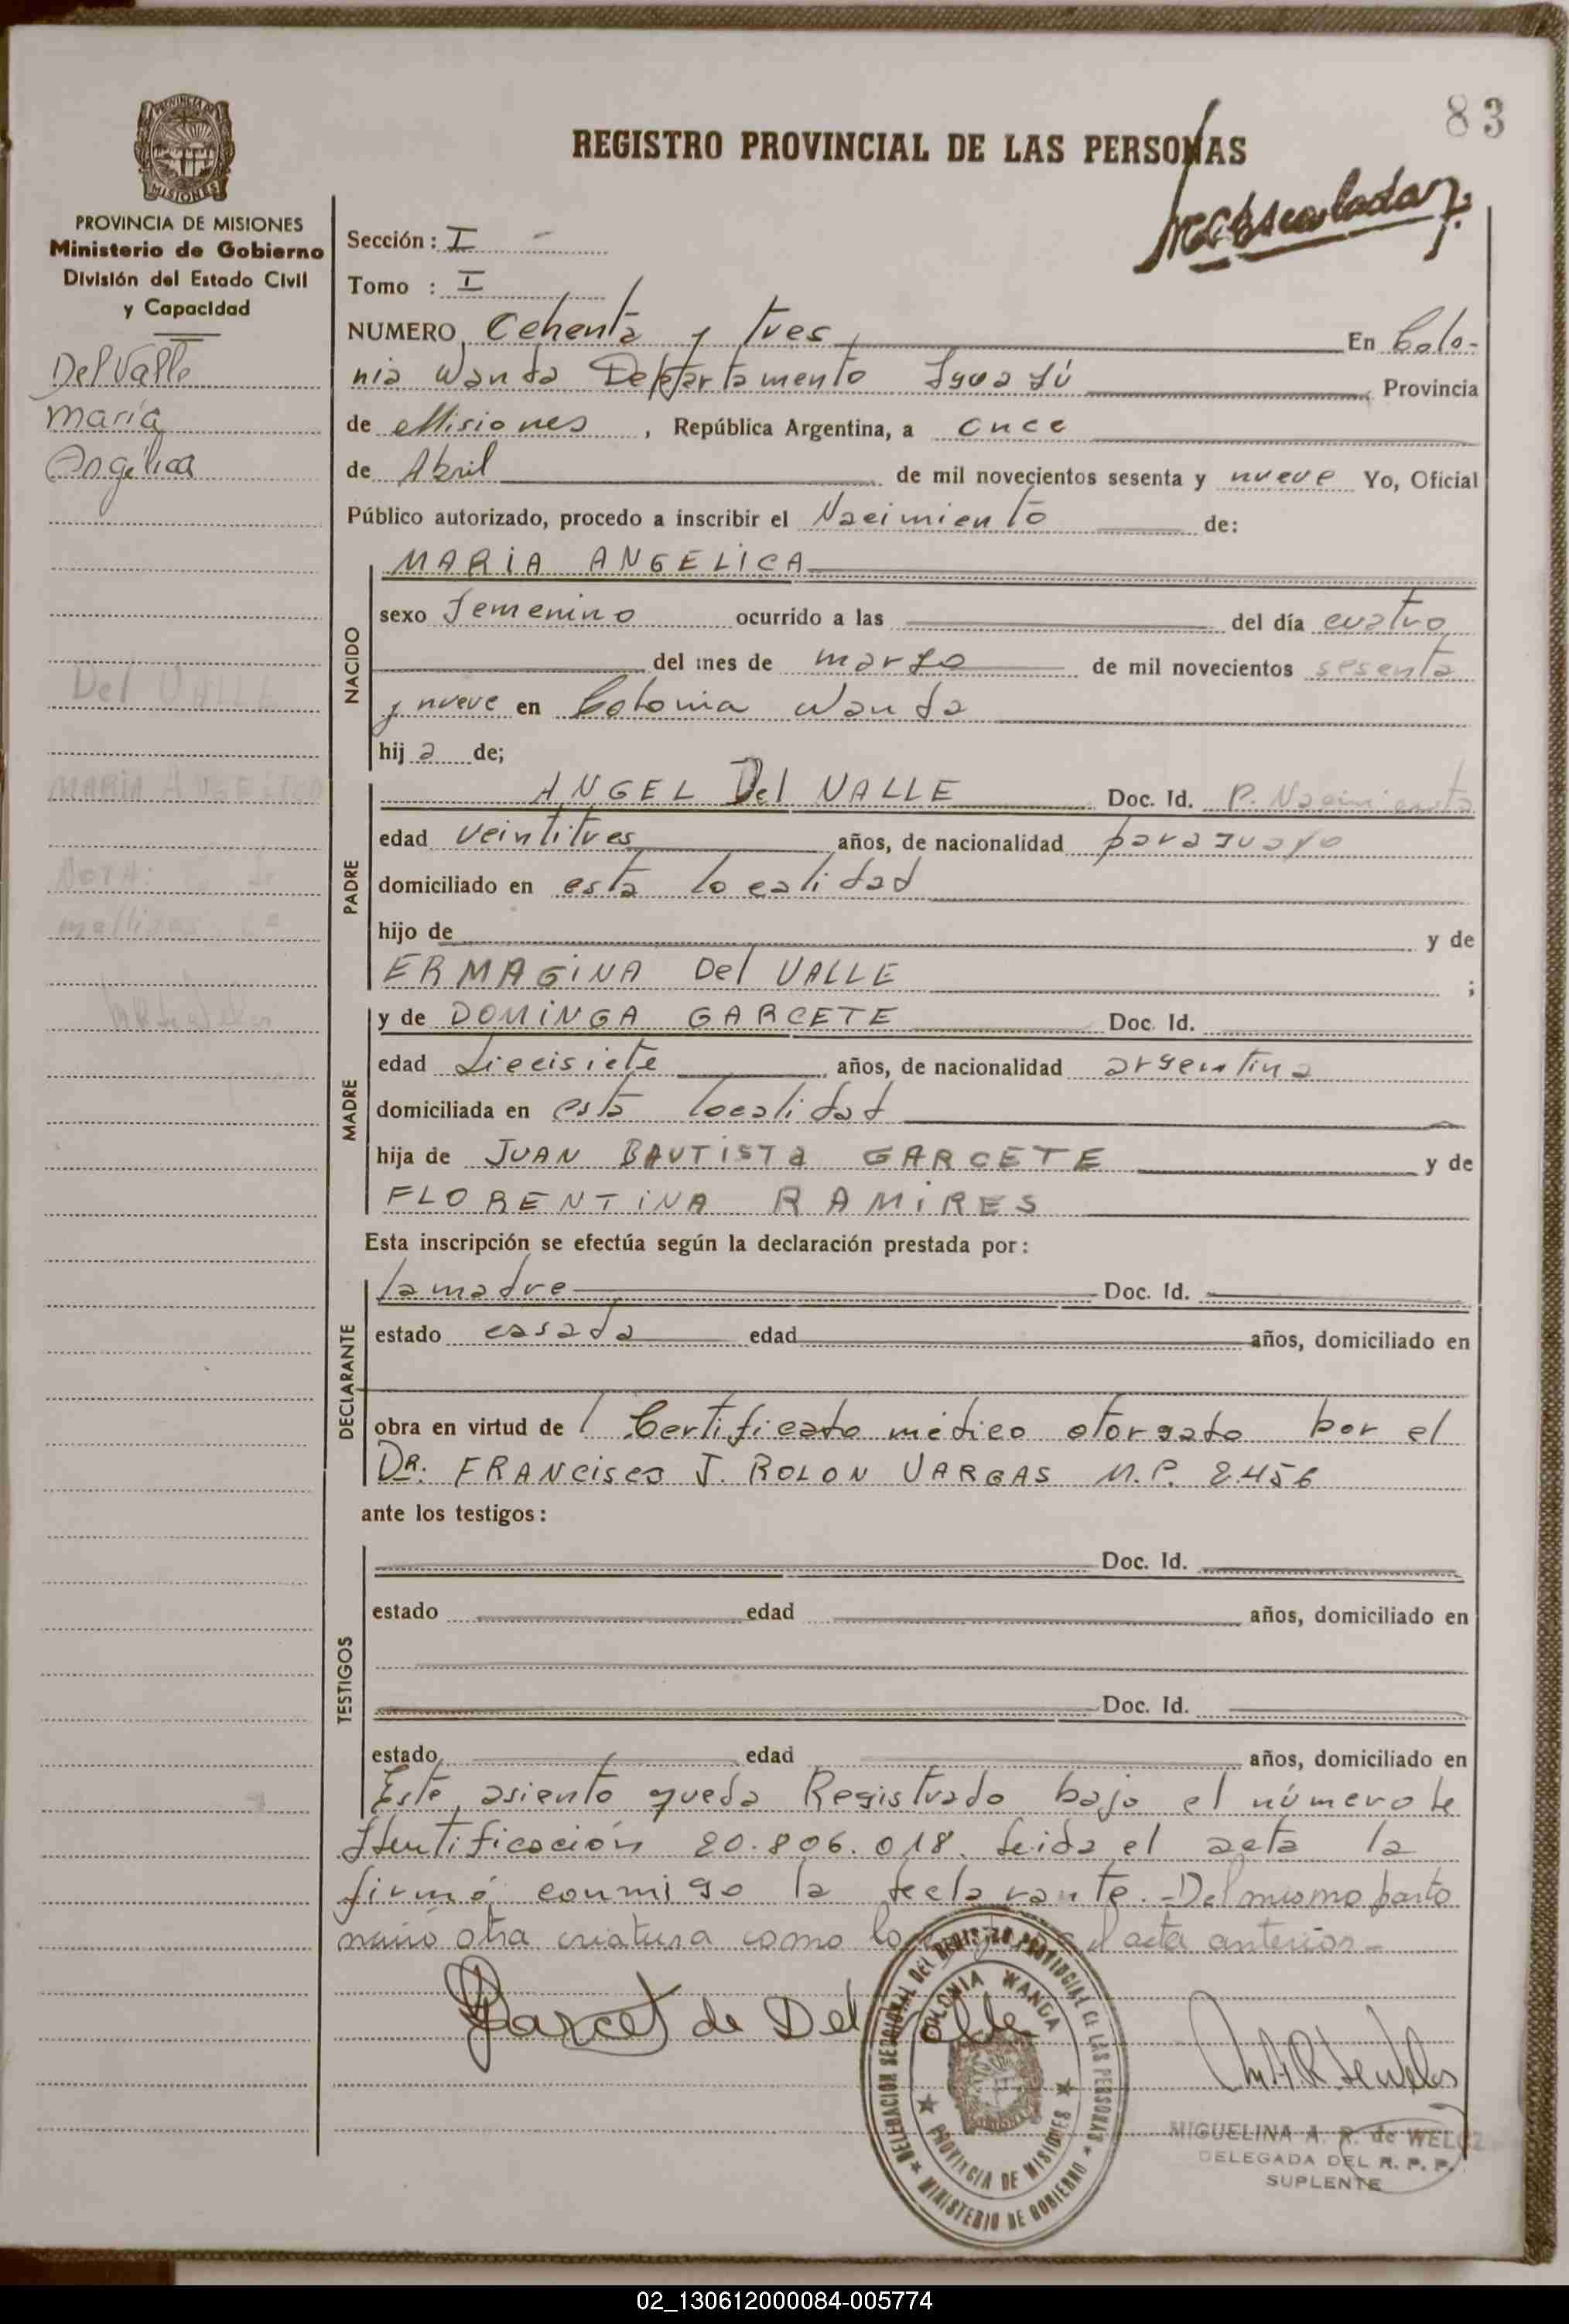 83
REGISTRO PROVINCIAL DE LAS PERSONAS
PROVINCIA DE MISIONES
MISIONES
PROVINCIA DE MISIONES
Ministerio de Gobierno
División del Estado Civil
y Capacidad
Del Valle
María
Angélica
Del VALLE
MARIA ANGELICA
NOTA:
mellizas
Sección: I -
Tomo : I
NUMERO Ochenta y tres En Colo-
nia Wanda Departamento Iguazú Provincia
de Misiones, República Argentina, a once
de Abril de mil novecientos sesenta y nueve Yo, Oficial
Público autorizado, procedo a inscribir el Nacimiento de:
NACIDO
MARIA ANGELICA
sexo femenino ocurrido a las del día cuatro
del mes de marzo de mil novecientos sesenta
y nueve en Colonia Wanda
hij a de;
PADRE
ANGEL Del VALLE Doc. Id. P. Nacimiento
edad veintitres años, de nacionalidad paraguayo
domiciliado en esta localidad
hijo de y de
ERMAGINA Del VALLE ;
MADRE
y de DOMINGA GARCETE Doc. Id.
edad diecisiete años, de nacionalidad argentina
domiciliada en esta localidad
hija de JUAN BAUTISTA GARCETE y de
FLORENTINA RAMIRES
Esta inscripción se efectúa según la declaración prestada por:
DECLARANTE
la madre Doc. Id.
estado casada edad años, domiciliado en
obra en virtud de Certificado médico otorgado por el
DR. FRANCISCO J. ROLON VARGAS M.P. 2456
ante los testigos:
TESTIGOS
Doc. Id.
estado edad años, domiciliado en
Doc. Id.
estado edad años, domiciliado en
Este asiento queda Registrado bajo el número de
Identificación 20.806.018. Leida el acta la
firmó conmigo la declarante.- Del mismo parto
nació otra criatura como lo el acta anterior.-
Garcet de Del Valle
DELEGACION SECCIONAL DEL REGISTRO PROVINCIAL DE LAS PERSONAS
COLONIA WANDA
PROVINCIA DE MISIONES
MINISTERIO DE GOBIERNO
MIGUELINA A. R. de WELOZ
DELEGADA DEL R. P. P.
SUPLENTE
02_130612000084-005774